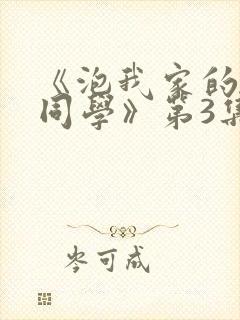 《泡我家的
同學》第3集
岑可成